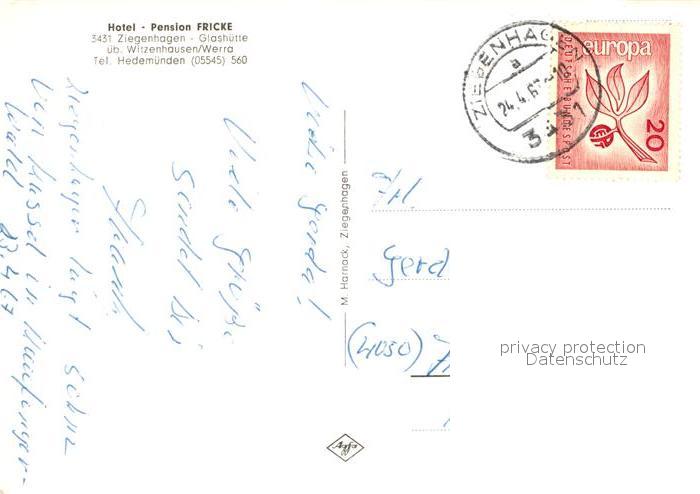 Hotel - Pension FRICKE
3431 Ziegenhagen - Glashütte
üb. Witzenhausen/Werra
Tel. Hedemünden (05545) 560
Liebe Gerda!
Viele Grüße
sendet Dir
Ziegenhagen liegt
von Kassel in Kaufunger-
wald 23.4.67
M. Harnack, Ziegenhagen
Frl.
Gerd
(4050)
Agfa
ZIEGENHAGEN
a
24.4.67
3431
europa
DEUTSCHE BUNDESPOST
20
privacy protection
Datenschutz